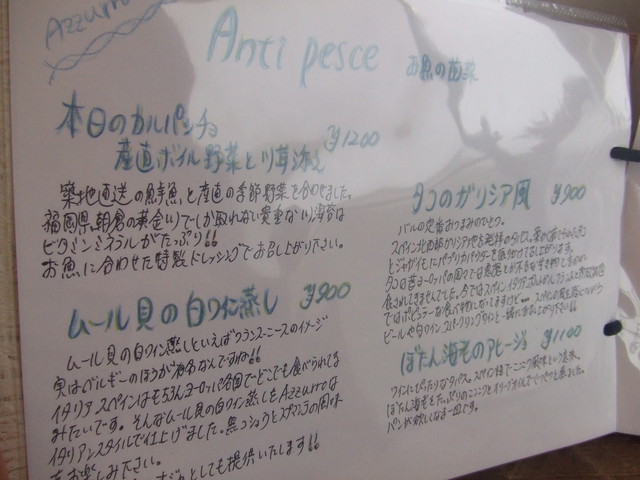 Azzurro
Anti pesce お魚の前菜
本日のカルパッチョ
産直ボイル野菜と川茸添え ¥1200
築地直送の鮮魚と産直の季節野菜を合わせました。
福岡県、朝倉の黄金川でしか取れない貴重な川海苔は
ビタミンミネラルがたっぷり!!
お魚に合わせた特製ドレッシングでお召し上がり下さい。
ムール貝の白ワイン蒸し ¥900
ムール貝の白ワイン蒸しといえばフランス・ニースのイメージ
実はベルギーのほうが有名なんですね!!
イタリアスペインはもちろんヨーロッパ各国でどこでも食べられてる
みたいです。そんなムール貝の白ワイン蒸しをAzzurroは
イタリアンスタイルで仕上げました。黒コショウと
お楽しみ下さい。
としても提供いたします!!
タコのガリシア風 ¥900
バルの定番おつまみのひとつ。
スペイン北西部ガリシア地方発祥のタパス。
とジャガイモにパプリカパウダーを
タコは昔ヨーロッパの国々では悪魔
ビールや白ワイン、スパークリングワインと一緒にお召し上がり下さい!!
ぼたん海老のアヒージョ ¥1100
ワインにぴったりなタパス。スペイン語で「ニンニク風味」という意味。
ぼたん海老をたっぷりのニンニクとオリーブオイルで
パンが欲しくなる一皿です。